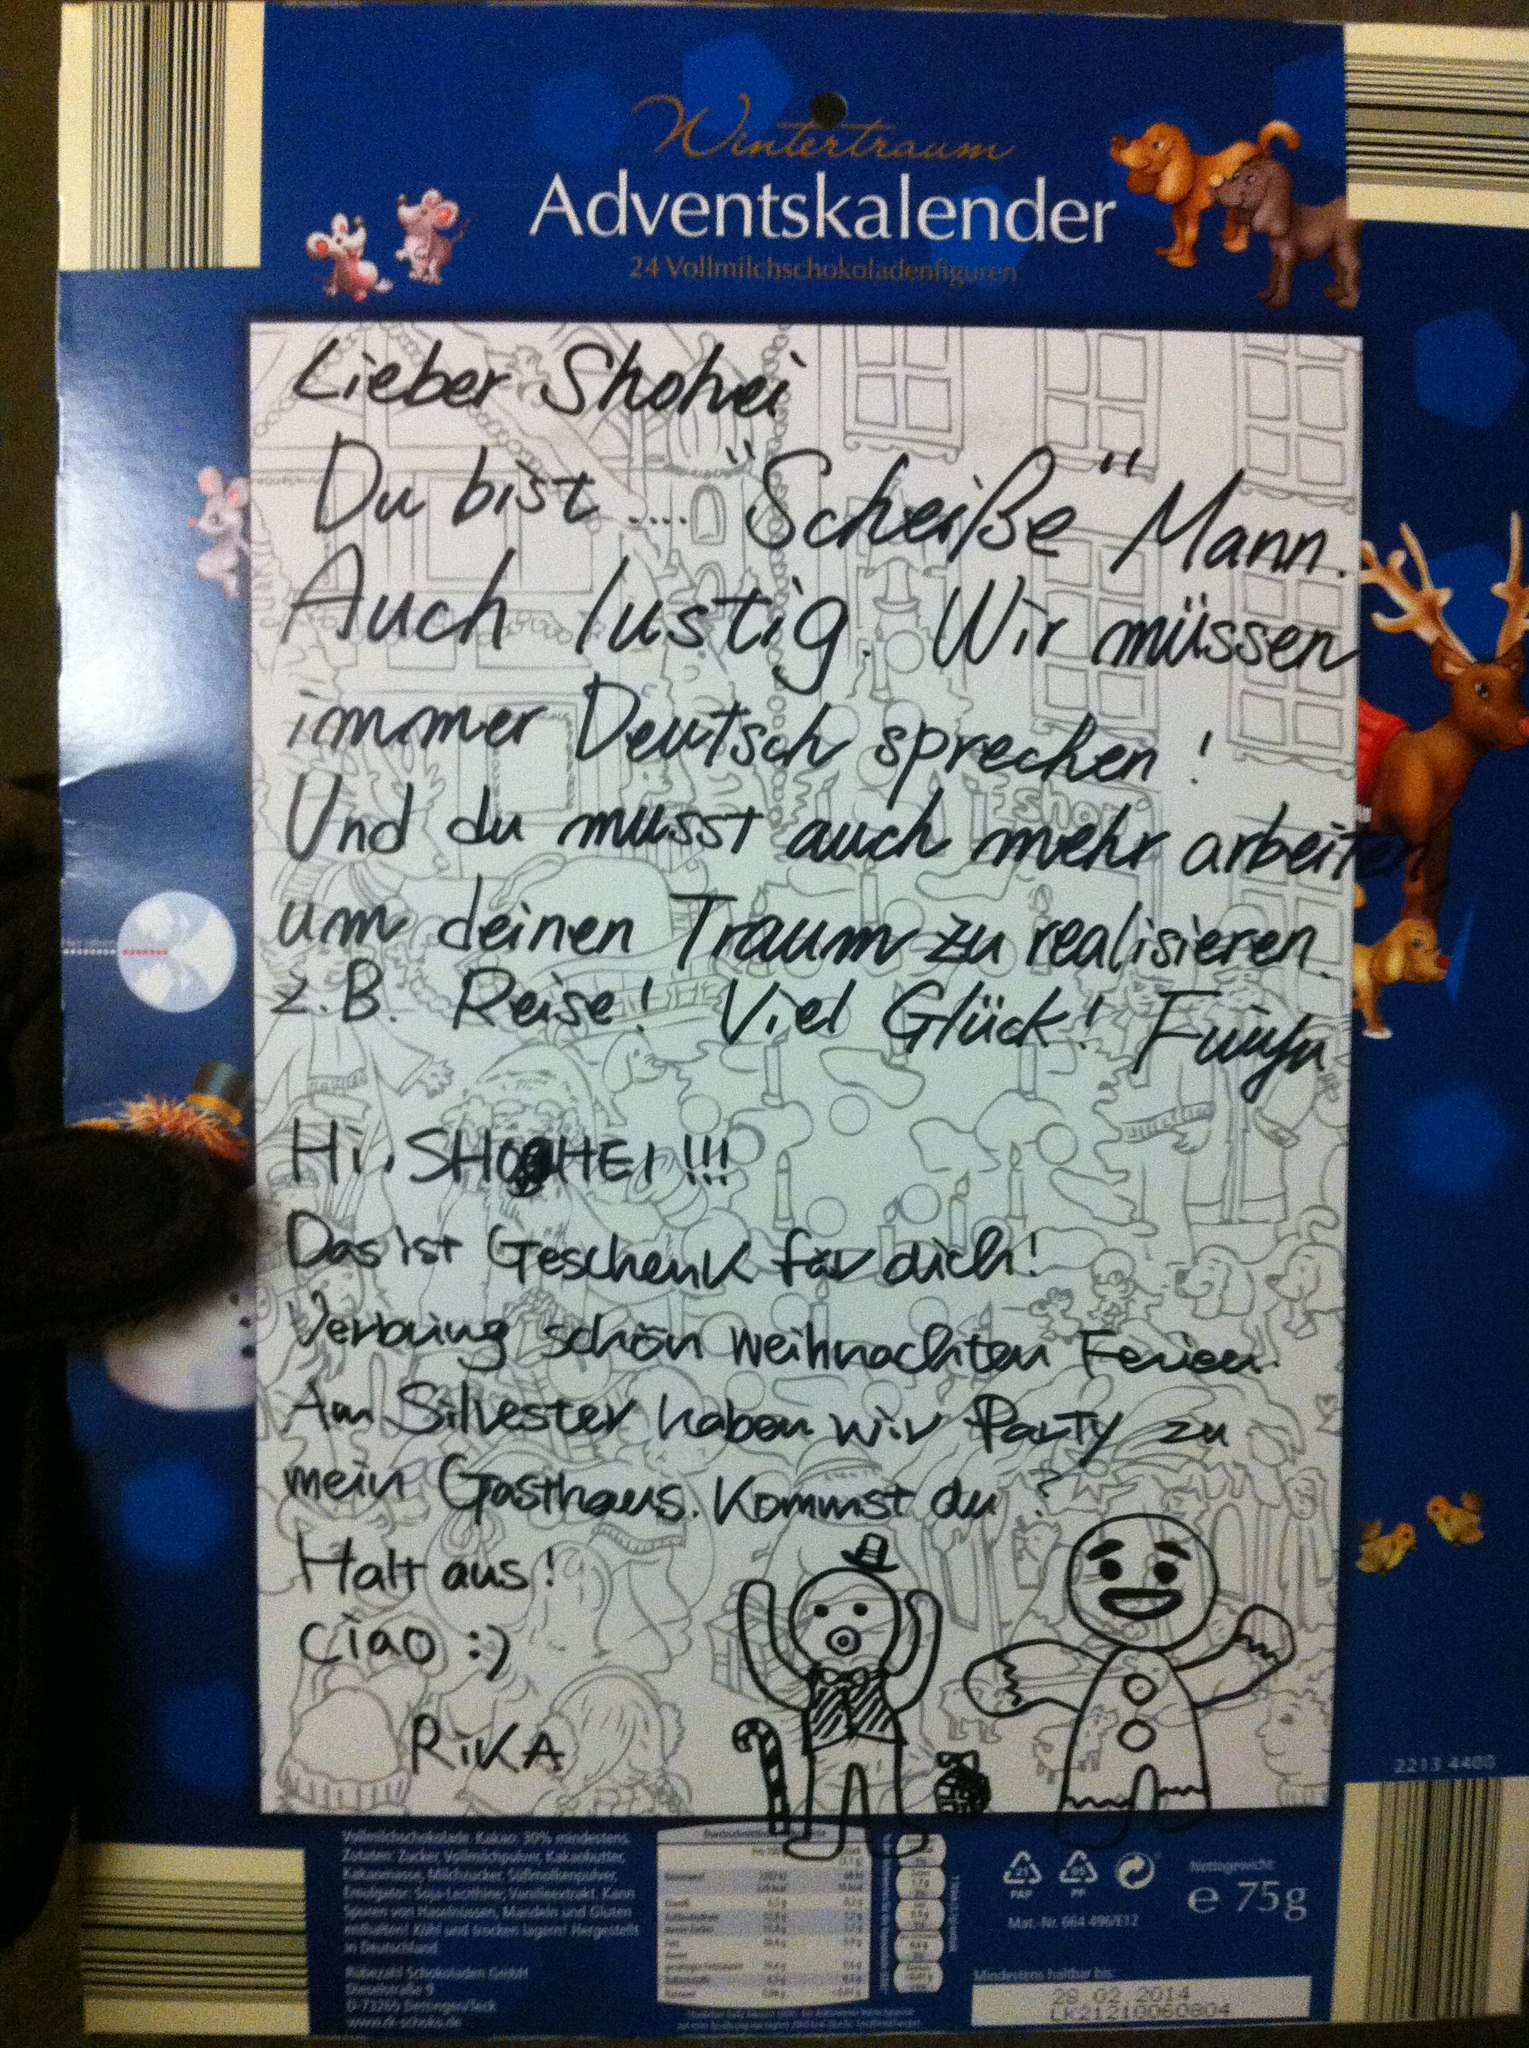 Wintertraum
Adventskalender
24 Vollmilchschokoladenfiguren
Lieber Shohei
Du bist .... "Scheiße" Mann.
Auch lustig. Wir müssen
immer Deutsch sprechen!
Und du musst auch mehr arbeiten
um deinen Traum zu realisieren.
z.B. Reise! Viel Glück!
Hi, SHOHEI!!!
Das ist Geschenk für dich!
Verbring schön Weihnachten Ferien.
Am Silvester haben wir Party zu
mein Gasthaus. Kommst du?
Halt aus!
Ciao :)
RiKA
2213 4400
Vollmilchschokolade: Kakao: 30% mindestens.
Zutaten: Zucker, Vollmilchpulver, Kakaobutter,
Kakaomasse, Milchzucker, Süßmolkenpulver,
Emulgator: Soja-Lecithine; Vanilleextrakt. Kann
Spuren von Haselnüssen, Mandeln und Gluten
enthalten! Kühl und trocken lagern! Hergestellt
in Deutschland
Rübezahl Schokoladen GmbH
Dieselstraße 9
D-73265 Dettingen/Teck
www.rk-schoko.de
21
PAP
05
PP
Mat.-Nr. 664 496/E12
Nettogewicht:
e 75g
Mindestens haltbar bis:
28.02.2014
LK21210060804